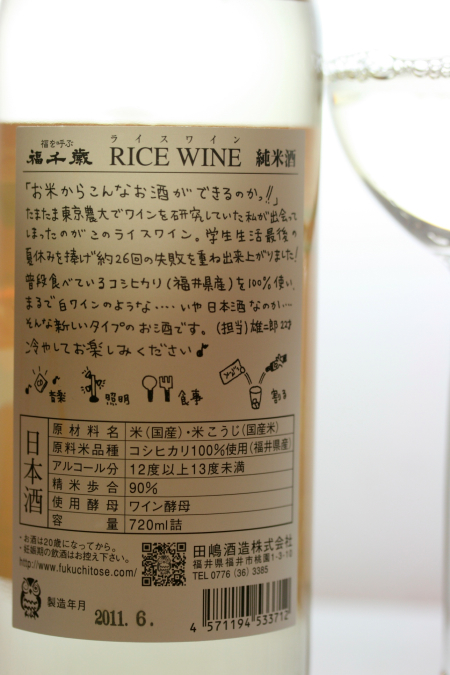 福を呼ぶ
ライスワイン
福千歳 RICE WINE 純米酒
「お米からこんなお酒ができるのかっ!!」
たまたま東京農大でワインを研究していた私が出会って
しまったのがこのライスワイン。学生生活最後の
夏休みを捧げ約26回の失敗を重ね出来上がりました!
普段食べているコシヒカリ(福井県産)を100%使い、
まるで白ワインのような‥‥いや日本酒なのか‥‥
そんな新しいタイプのお酒です。(担当)雄二郎22才
冷やしてお楽しみください♪
音楽 照明 食事 割る
日本酒
原材料名 米(国産)・米こうじ(国産米)
原料米品種 コシヒカリ100%使用(福井県産)
アルコール分 12度以上13度未満
精米歩合 90%
使用酵母 ワイン酵母
容量 720ml詰
・お酒は20歳になってから。
・妊娠期の飲酒はお控え下さい。
http://www.fukuchitose.com/
田嶋酒造株式会社
福井県福井市桃園1-3-10
TEL 0776(36)3385
製造年月 2011.6.
4 571194 533712